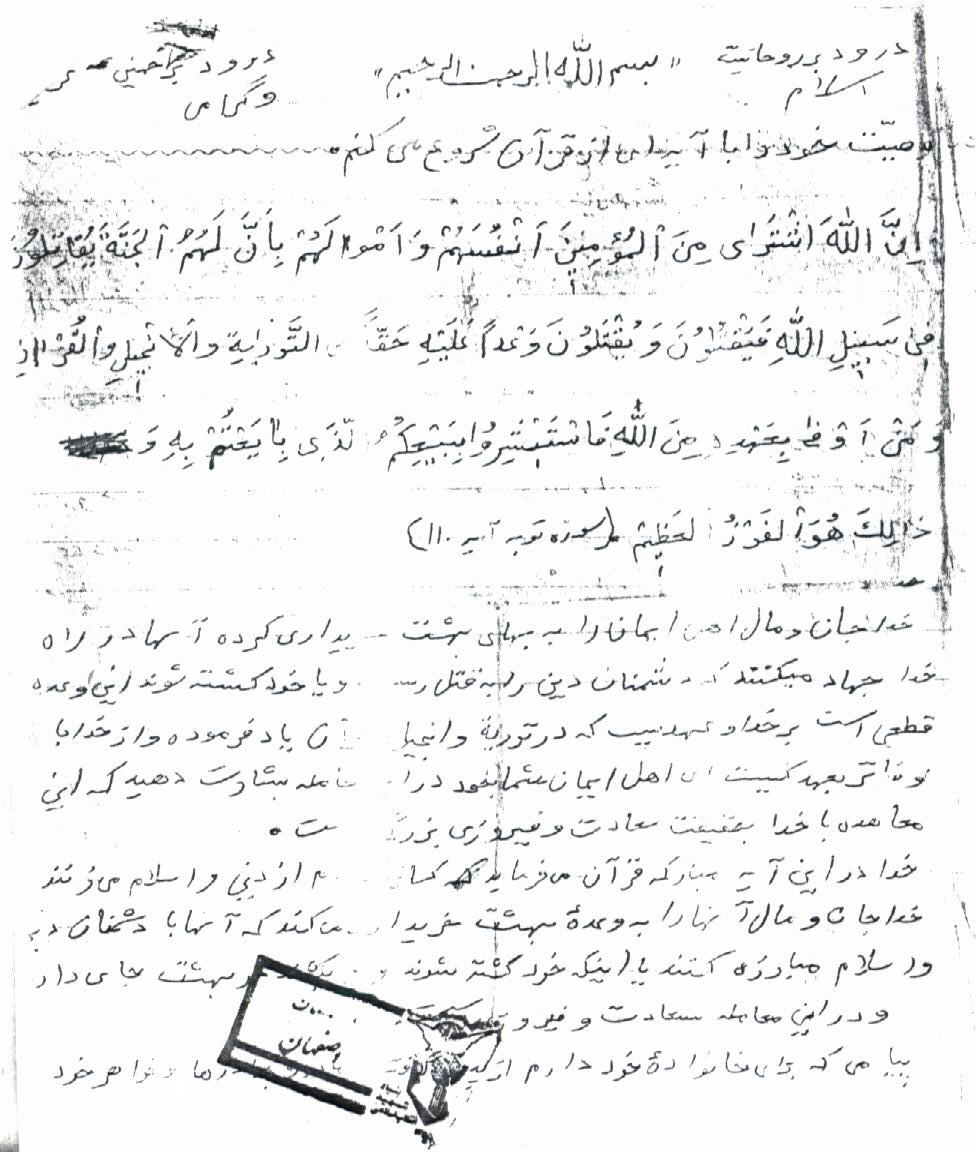 درود بر روحانیت «بسم الله الرحمن الرحیم» درود بر خمینی
اسلام و گرامی
وصیّت خود را با آیه‌ای از قرآن شروع می کنم.
اِنَّ اللّهَ اشْتَرای مِنَ الْمُؤْمِنینَ اَنْفُسَهُمْ وَ اَمْوالَهُمْ بِاَنَّ لَهُمُ الْجَنَّةَ یُقاتِلُونَ
فی سَبیلِ اللّهِ فَیَقْتُلُونَ وَ یُقْتَلُونَ وَعْداً عَلَیْهِ حَقّاً التَّورایةِ وَالْاِنْجیلِ وَالْقُرْانِ
وَ مَنْ اَوْفی بِعَهْدِه مِنَ اللّهِ فَاسْتَبْشِرُوا بِبَیْعِکُمُ الَّذی بایَعْتُمْ بِهِ وَ
ذالِکَ هُوَ الْفَوْزُ الْعَظیمْ (سوره توبه آیه ۱۱۰)
خدا جان و مال اهل ایمان را به بهای بهشت خریداری کرده آنها در راه
خدا جهاد میکنند که دشمنان دین را به قتل و یا خود کشته شوند این وعده
قطعی است بر خدا و عهدیست که در توریة و انجیل یاد فرموده و از خدا با
وفاتر بعهد کیست ای اهل ایمان شما بخود در معامله بشارت دهید که این
معاهده با خدا بحقیقت سعادت و فیروزی بزرگ
خدا در این آیه مبارکه قرآن می‌فرماید که از دین و اسلام می‌زنند
خدا جان و مال آنها را به وعدهٔ بهشت خریدار می‌کند که آنها با دشمنان
و اسلام مبارزه کنند یا اینکه خود کشته شوند بهشت جای دار
و در این معامله سعادت و فیروزی
پیامی که برای خانوادهٔ خود دارم خواهر خود
اصفهان